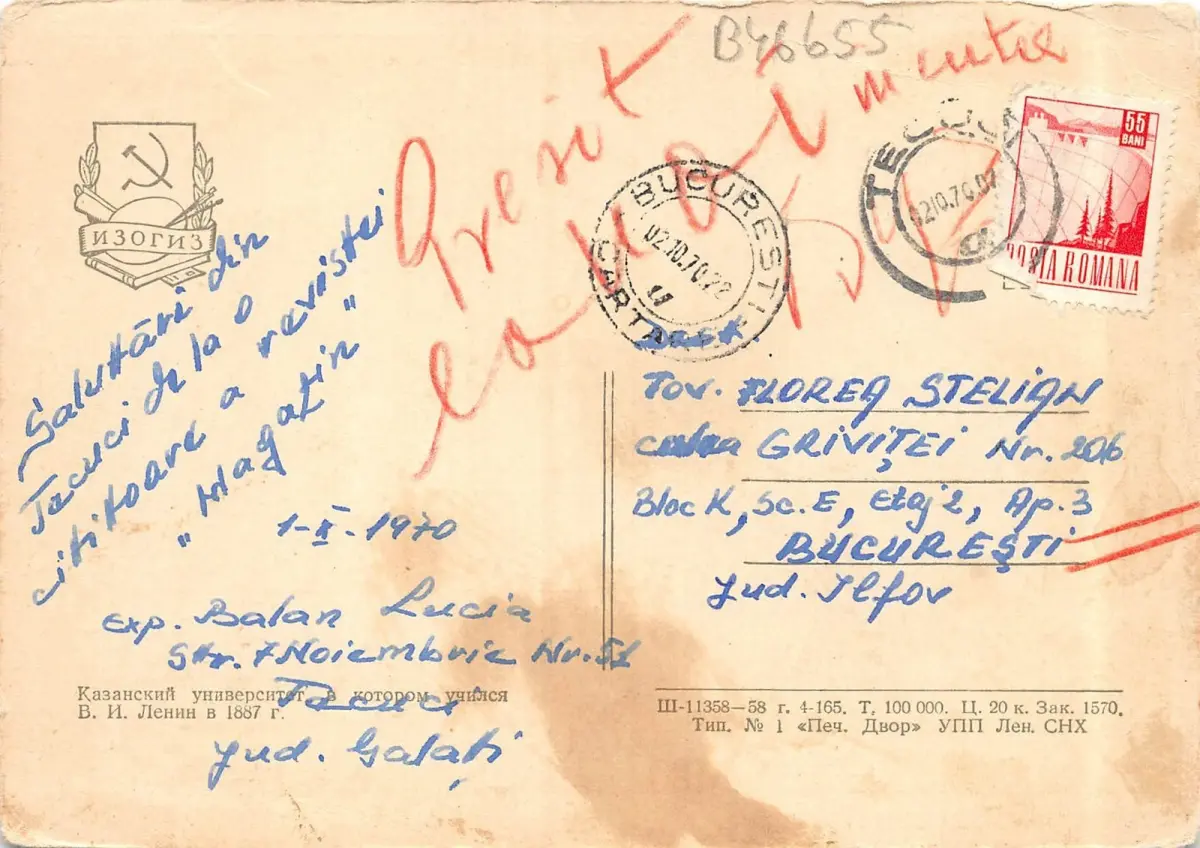 B46655
Gresit
ИЗОГИЗ
BUCUREȘTI
02.10.70
CARTARE
TECUCI
02.10.70.07
55
BANI
POSTA ROMANA
Salutări din
Tecuci de la o
cititoare a revistei
"Magazin"
1-X-1970
Exp. Balan Lucia
Str. 7 Noiembrie Nr. 51
Tecuci
jud. Galați
Tov. FLOREA STELIAN
calea GRIVIȚEI Nr. 206
Bloc K, Sc. E, Etaj 2, Ap. 3
BUCUREȘTI
Jud. Ilfov
Казанский университет, в котором учился
В. И. Ленин в 1887 г.
Ш-11358—58 г. 4-165. Т. 100 000. Ц. 20 к. Зак. 1570.
Тип. № 1 «Печ. Двор» УПП Лен. СНХ